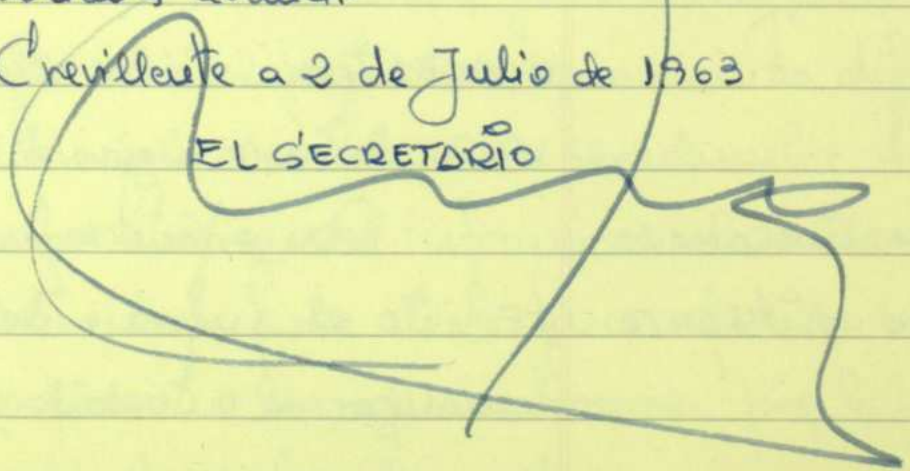 Crevillente a 2 de Julio de 1963
EL SECRETARIO